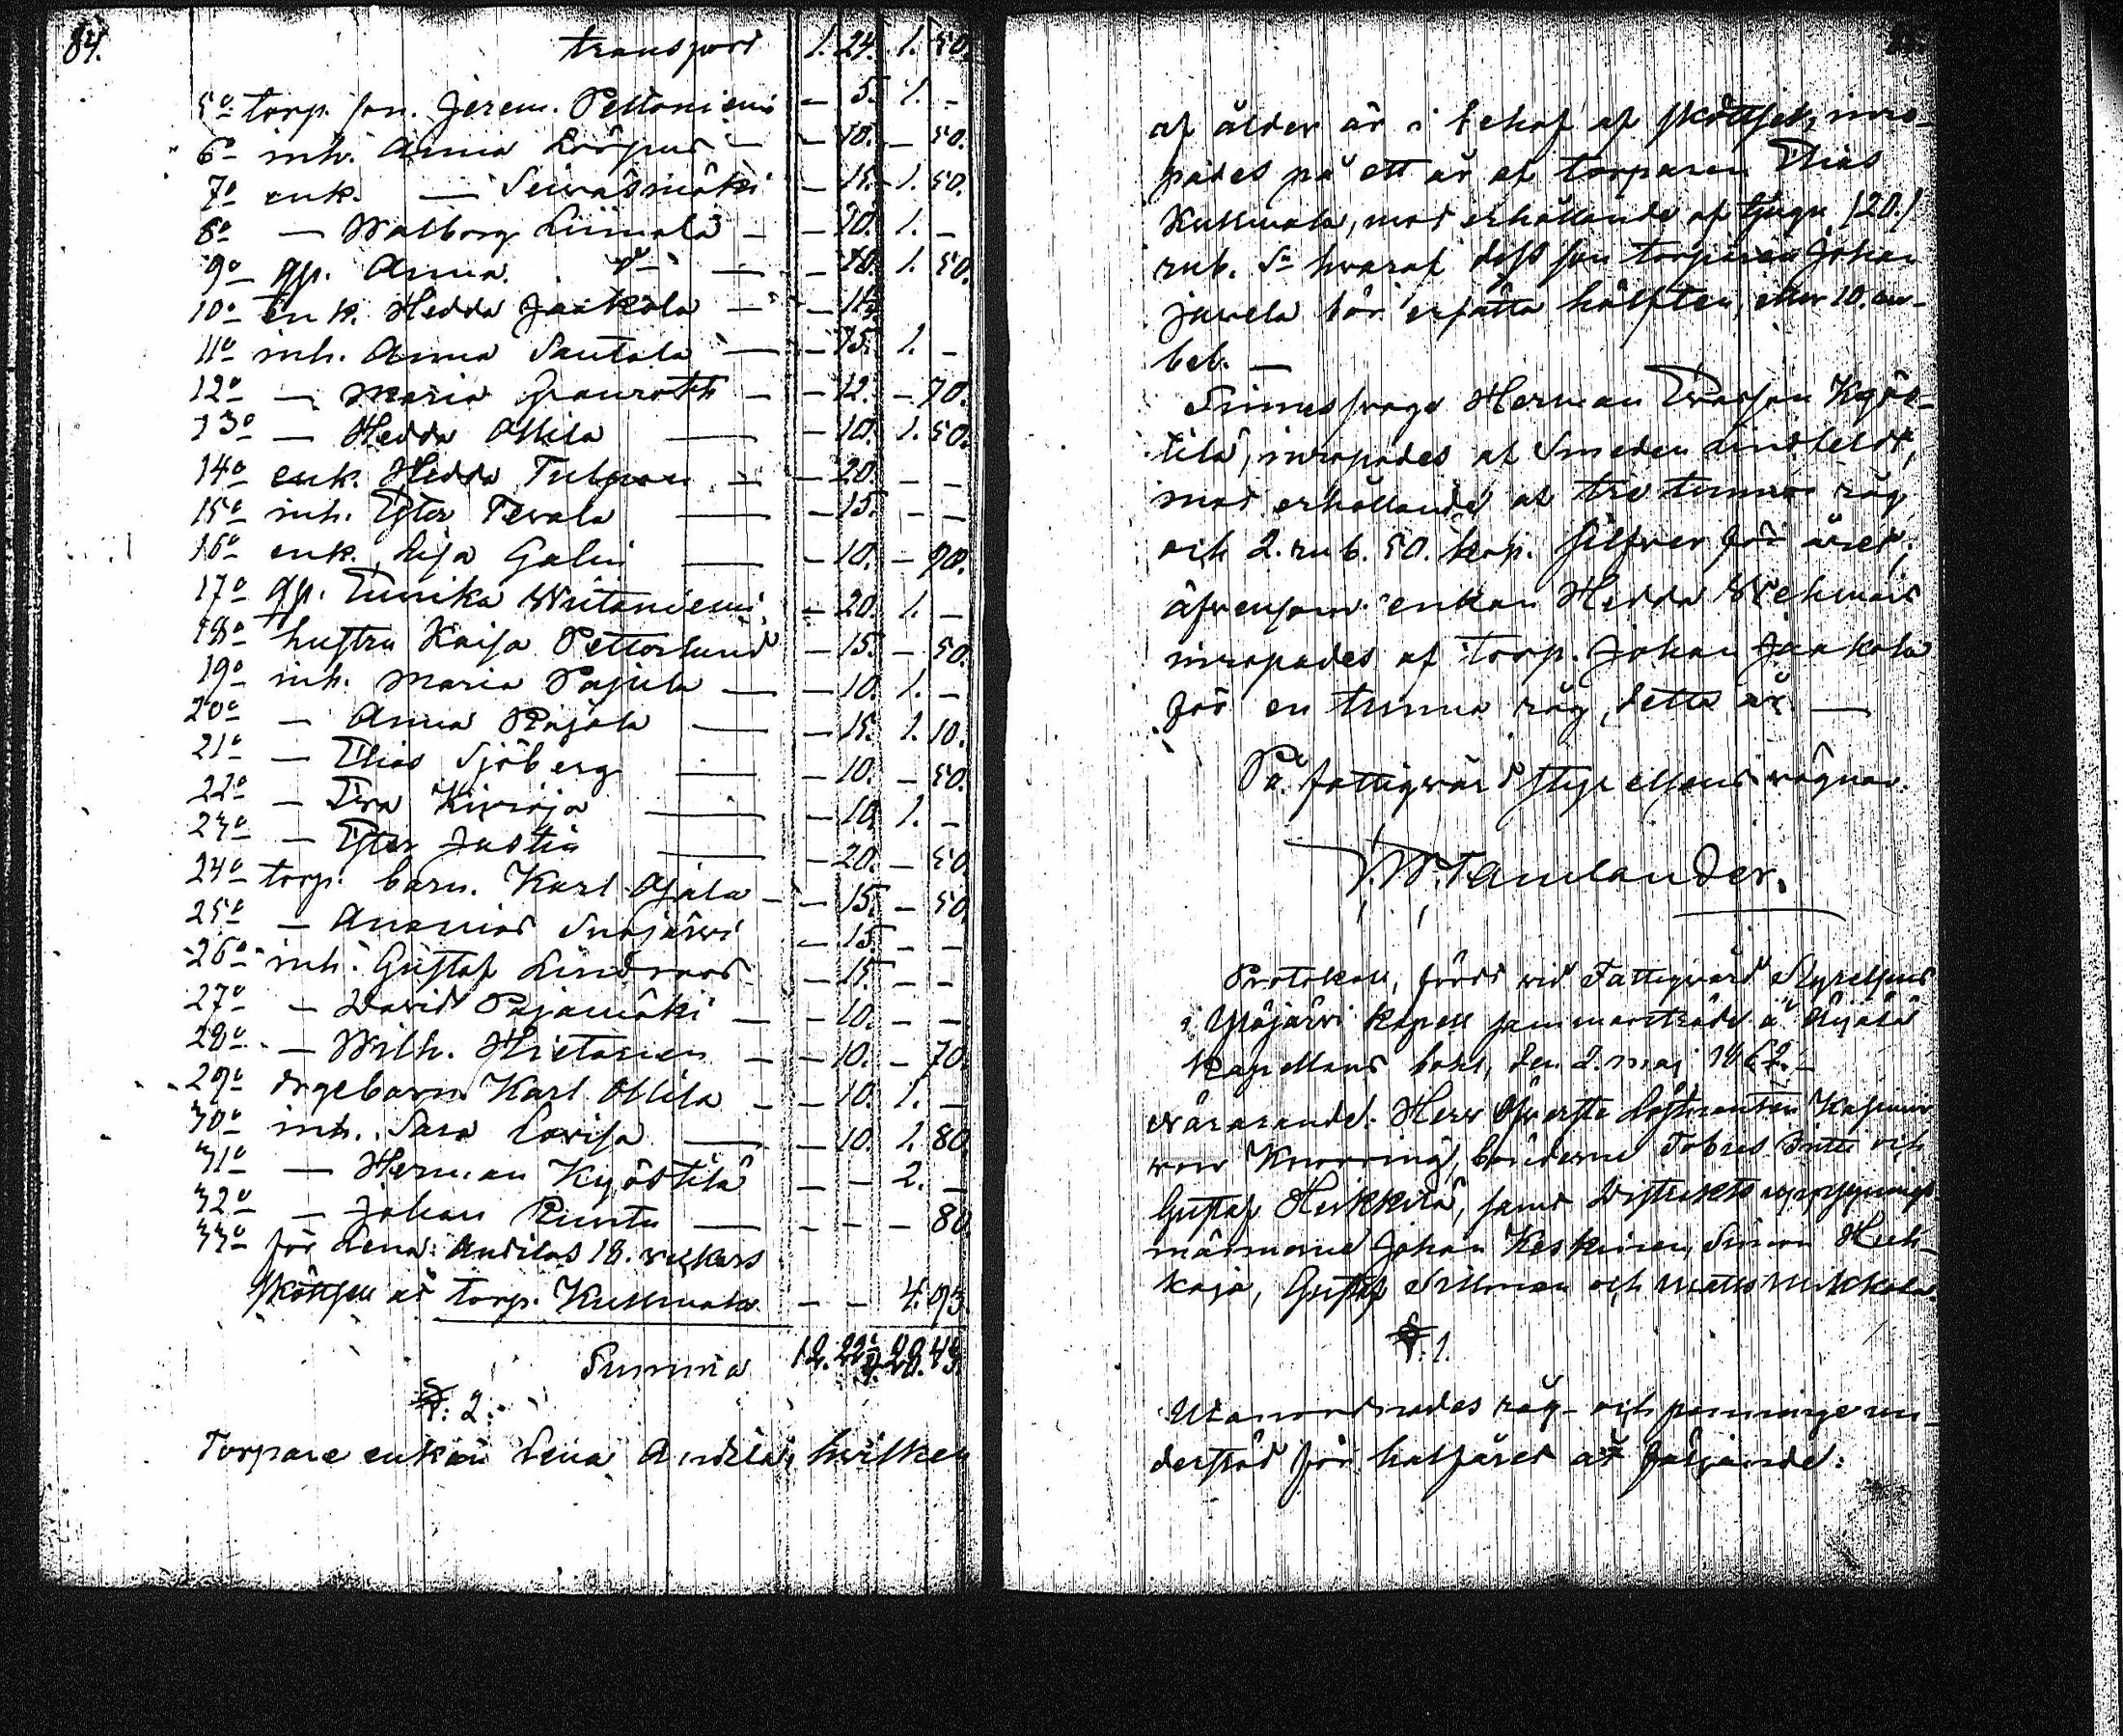 84.
transport 1. 24. 1. 50.
5o torp. son. Jerem. Peltoniemi — 5. 1. —
6o inh. Anna Löfgrens — — 10. — 50.
7o enk. — Seiväsmäki — 15. 1. 50.
8o — Walborg Liimala — — 20. 1. —
9o gp. Anna do — — 20. 1. 50.
10o enk. Hedda Jaakola — —
11o inh. Anna Santala — — 15. 1. —
12o — Maria Granroth — — 12. — 70.
13o — Hedda Ollila — — 10. 1. 50.
14o enk. Hedda — — 20. — —
15o inh. Ester Tevala — — 15. — —
16o enk. Lisa Galin — — 10. — 90.
17o gp. Eurika Wiitaniemi — 20. 1. —
18o hustru Kaisa Petterlund — 15. — 50.
19o inh. Maria Pajula — — 10. 1. —
20o — Anna Rajala — — 15. 1. 10.
21o — Elias Sjöberg — — 10. — 50.
22o — Eva Kivioja — — 10. 1. —
23o — Ester Justin — — 20. — 50.
24o torp. barn. Karl Ojala — — 15. — 50.
25o — Ananias — 15. — —
26o inh. Gustaf Lindroos — 15. — —
27o — David Pajamäki — — 10. — —
28o — Wilh. Hietanen — — 10. — 70.
29o drgebarn Karl Ollila — — 10. 1. —
30o inh. Sara Lovisa — — 10. 1. 80.
31o — Herman Kyöstilä — — 2. —
32o — Johan Runtu — — — — 80.
33o för Lena Andilas 18. veckors
skötsel åt torp. Kullmala — — 4. 93.
Summa 12. 28. 43.
§. 2.
Torpare enkan Lena Andila, hvilken
af ålder är i behof af skötsel, inro-
pades på ett år af torparen Elias
Kullmala, mot erhållande af tjugu /20./
rub. Sr hvaraf dess son torparen Johan
Juvela bör ersätta hälften, eller 10. ru-
bel. —
Sinnessvage Herman Evasson Kyös-
tilä, inropades af Smeden Lindfeldt,
mot erhållande af tre tunnor råg
och 2. rub. 50. kop. silfver för året;
äfvensom enkan Hedda Wehmais
inropades af torp. Johan Jaakola
för en tunna råg, detta år. —
På fattigvård styrelsens vägnar.
W. Tamlander.
Protokoll, fördt vid Fattigvård Styrelsens
i Ylöjärvi kapell sammanträde å Äijälä
kapellans bohl, den 2. maj 1862. —
närvarande: Herr Öfverste Löjtnanten Kasimir
von Knorring, bönderne Tobias Antti och
Gustaf Heikkilä, samt Distrikts uppsynings
männerne Johan Keskinen, Simon Huh-
kaja, Gustaf Sillman och Matts Mikkola.
§. 1.
Utanordnades råg- och penninge un-
derstöd för halfåret åt följande: